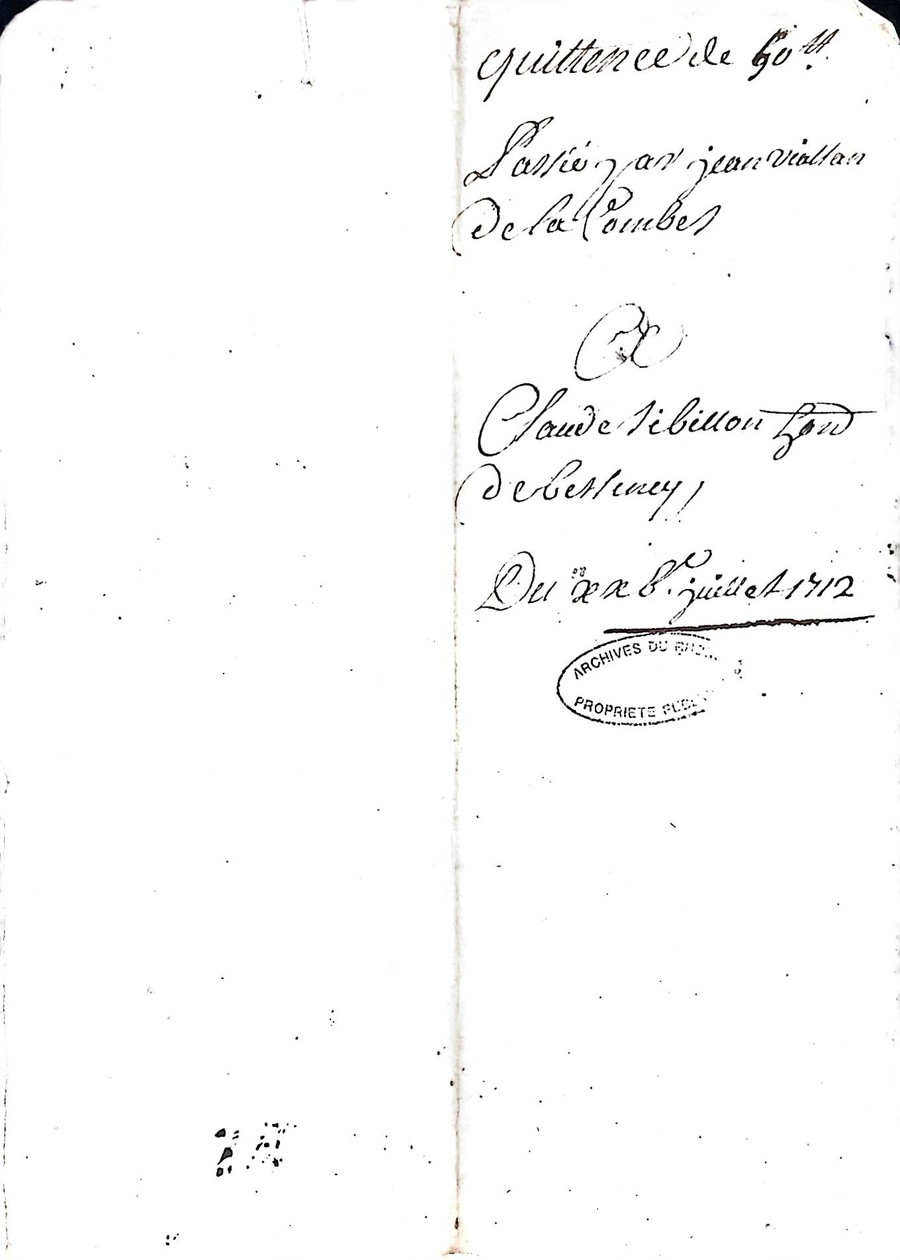 quittence de 50 ₶.
Passé par jean viallan
De la Combes
A
Claude sibillon
de bessenay
Du xx 8.e juillet 1712
ARCHIVES DU
PROPRIETE